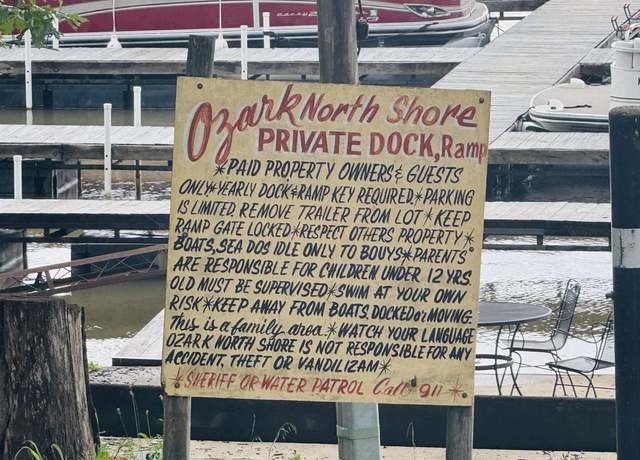 Ozark North Shore
PRIVATE DOCK, Ramp
*PAID PROPERTY OWNERS & GUESTS
ONLY*YEARLY DOCK&RAMP KEY REQUIRED*PARKING
IS LIMITED. REMOVE TRAILER FROM LOT*KEEP
RAMP GATE LOCKED*RESPECT OTHERS PROPERTY*
BOATS, SEA DOS IDLE ONLY TO BOUYS*PARENTS
ARE RESPONSIBLE FOR CHILDREN UNDER 12 YRS.
OLD MUST BE SUPERVISED*SWIM AT YOUR OWN
RISK*KEEP AWAY FROM BOATS, DOCKED or MOVING.
This is a family area*WATCH YOUR LANGUAGE
OZARK NORTH SHORE IS NOT RESPONSIBLE FOR ANY
ACCIDENT, THEFT OR VANDILIZAM*
*SHERIFF OR WATER PATROL Call 911*